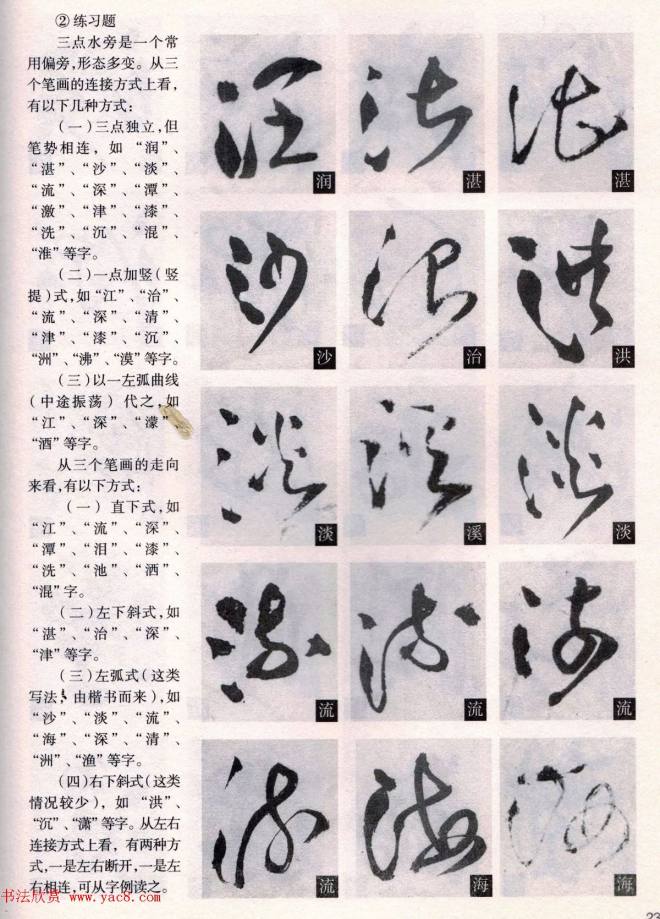 ②练习题
三点水旁是一个常
用偏旁,形态多变。从三
个笔画的连接方式上看,
有以下几种方式:
(一)三点独立,但
笔势相连,如“润”、
“湛”、“沙”、“淡”、
“流”、“深”、“潭”、
“激”、“津”、“漆”、
“洗”、“沉”、“混”、
“淮”等字。
(二)一点加竖(竖
提)式,如“江”、“治”、
“流”、“深”、“清”、
“津”、“漆”、“沉”、
“洲”、“沸”、“漠”等字。
(三)以一左弧曲线
(中途振荡)代之,如
“江”、“深”、“濛”、
“酒”等字。
从三个笔画的走向
来看,有以下方式:
(一)直下式,如
“江”、“流”、“深”、
“潭”、“泪”、“漆”、
“洗”、“池”、“洒”、
“混”字。
(二)左下斜式,如
“湛”、“治”、“深”、
“津”等字。
(三)左弧式(这类
写法,由楷书而来),如
“沙”、“淡”、“流”、
“海”、“深”、“清”、
“洲”、“渔”等字。
(四)右下斜式(这类
情况较少),如“洪”、
“沉”、“潇”等字。从左右
连接方式上看,有两种方
式,一是左右断开,一是左
右相连,可从字例读之。
润 湛 湛
沙 治 洪
淡 溪 淡
流 流 流
流 海 海
书法欣赏 www.yac8.com